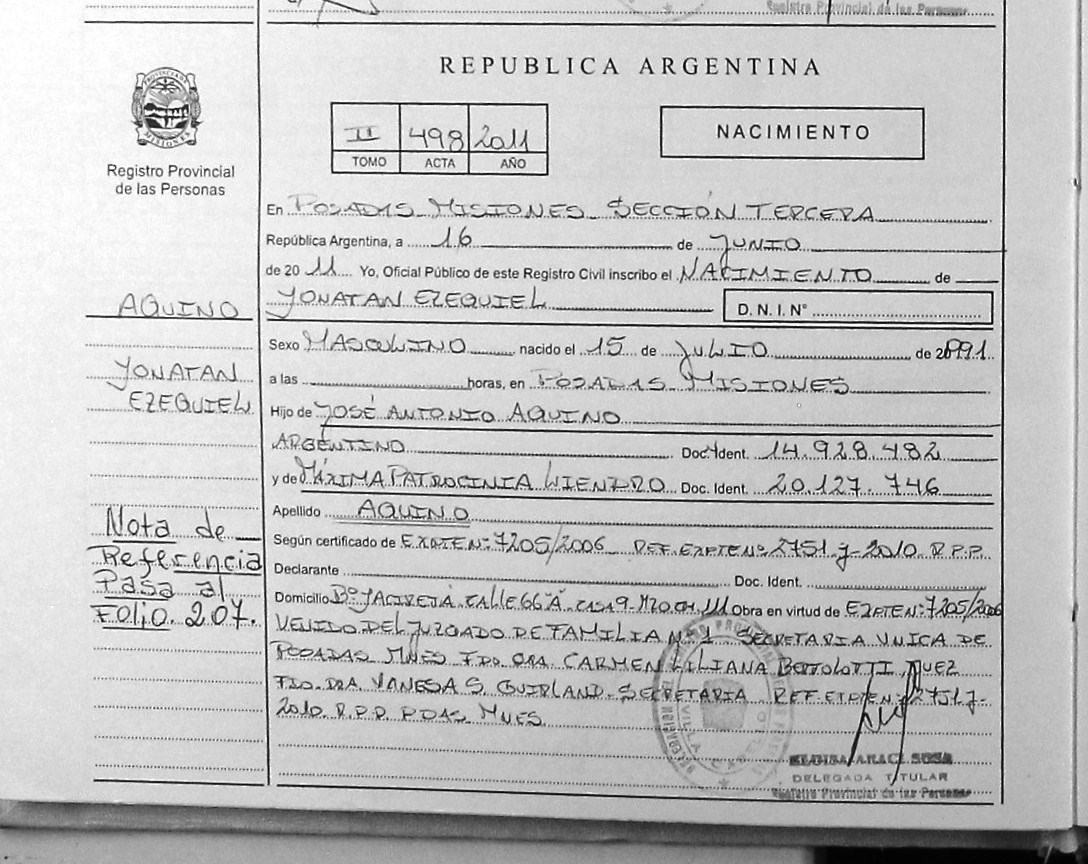 Registro Provincial de las Personas
REPUBLICA ARGENTINA
PROVINCIA DE MISIONES
Registro Provincial
de las Personas
II 498 2011
TOMO ACTA AÑO
NACIMIENTO
En POSADAS MISIONES SECCIÓN TERCERA
República Argentina, a 16 de JUNIO
de 2011 Yo, Oficial Público de este Registro Civil inscribo el NACIMIENTO de
YONATAN EZEQUIEL D. N. I. N°
AQUINO
Sexo MASCULINO nacido el 15 de JULIO de 1991.
YONATAN
EZEQUIEL
a las horas, en POSADAS MISIONES
Hijo de JOSÉ ANTONIO AQUINO
ARGENTINO Doc. Ident. 14.928.482
y de MÁXIMA PATROCINIA LIENDRO Doc. Ident. 20.127.746
Apellido AQUINO
Nota de
Referencia
Pasa al
Folio 207.
Según certificado de EXPTE N: 7205/2006 REF. EXPTE Nº 2751-J-2010 R.P.P.
Declarante Doc. Ident.
Domicilio Bº YACIRETÁ CALLE 66 A CASA 9 Obra en virtud de EXPTE N: 7205/2006
VENIDO DEL JUZGADO DE FAMILIA Nº 1 SECRETARIA UNICA DE
POSADAS MNES FDO. DRA. CARMEN LILIANA BERTOLOTTI JUEZ
FDO. DRA VANESA S. GUIRLAND SECRETARIA REF. EXPTE N: 2751J-
2010 R.P.P. PDAS MNES.
DELEGADA TITULAR
Registro Provincial de las Personas